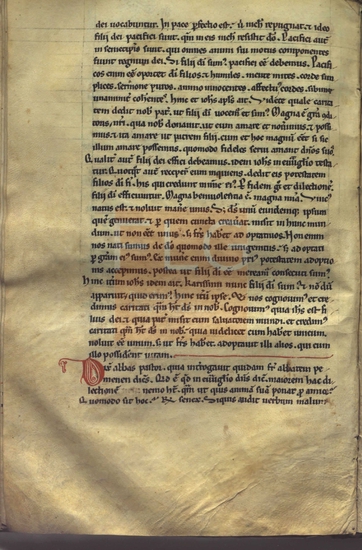 dei vocabuntur. In pace perfectio est. ubi nichil repugnat & ideo
filii dei pacifici sunt. qm in eis nichil resistit do. Pacifici aut
in semetipsis sunt. qui omnes animi sui motus componentes
sunt regnum dei. & filii di sum pacifici ee debemus. Pacifi
cos enim ee oportet di filios & humiles. mente mites. corde sim
plices. sermone puros. animo innocentes. affectu cordes. sibimet
unanimit coherentes. hinc et iohs apls ait. Videte quale carita
tem dedit nobis pat. ut filii di vocem et sim. Magna e gra adi
toris nri. qua nob donavit. ut eum amare et novimus & possu
mus. & ita amare ut patrem filii. cum et hoc magnu eet si sic
illum amare possemus. quomodo fideles servi amant dnos suos.
Qualit aut filii dei effici debeamus. idem iohs in evglio testa
tur. Quotqt aut receper eum inquiens. dedit eis potestatem
filios di fi. his qui credunt in nomine ei. Per fidem g et dilectione
filii di efficimur. Magna benivolentia. magna mia. Unicus
natus est & noluit manere unus. & ds unu eundemq; ipsum
que generat. & p quem cuncta creaverat. misit in hunc mun
dum. ut non eet unus. si frs haberet adoptatos. Non enim
nos nati sumus de do quomodo ille unigenitus. si adoptati
p gram ei sum. Ee nunc cum divino pri potestatem adoptio
nis accepimus. postea ut filii di ee meream consecuti sum.
Hinc itm iohs idem ait. Karissimi nunc filii di sum & nondu
apparuit quid erim. Hinc itm ipse. Et nos cognovim et cre
didimus caritati qm ht ds in nob. Cognovim quia ihs est fi
lius dei. & quia pat misit eum salvatorem mundi. et credim
caritati qm ht ds in nob. quia videlicet cum haberet unicum.
noluit ee unum. si ut frs haberet. adoptavit illi alios. qui cum
illo possident vitam.
Dix abbas pastor. quia interrogavit quidam fr abbatem pe
menen dicens. Qd e qd in evglio dns dicit. maiorem hac di
lectione nemo ht. qm ut quis anima sua ponat p amicis.
Quomodo fit hoc. R senex. Siquis audit verbum malum